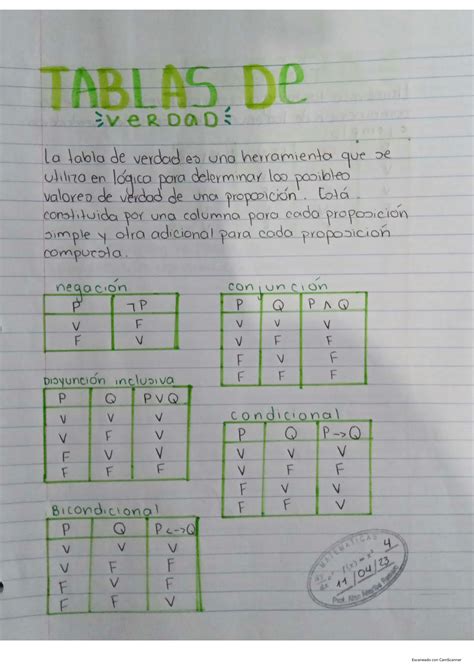 TABLAS De
VeRDaD
La tabla de verdad es una herramienta que se
utiliza en lógica para determinar los posibles
valores de verdad de una proposición. Está
constituida por una columna para cada proposición
simple y otra adicional para cada proposición
compuesta.
negación
P ¬P
V F
F V
conjunción
P Q P ∧ Q
V V V
V F F
F V F
F F F
Disyunción inclusiva
P Q P V Q
V V V
V F V
F V V
F F F
condicional
P Q P->Q
V V V
V F F
F V V
F F V
Bicondicional
P Q P<->Q
V V V
V F F
F V F
F F V
MATEMATICAS
4
11/04/23
Prof.
Escaneado con CamScanner